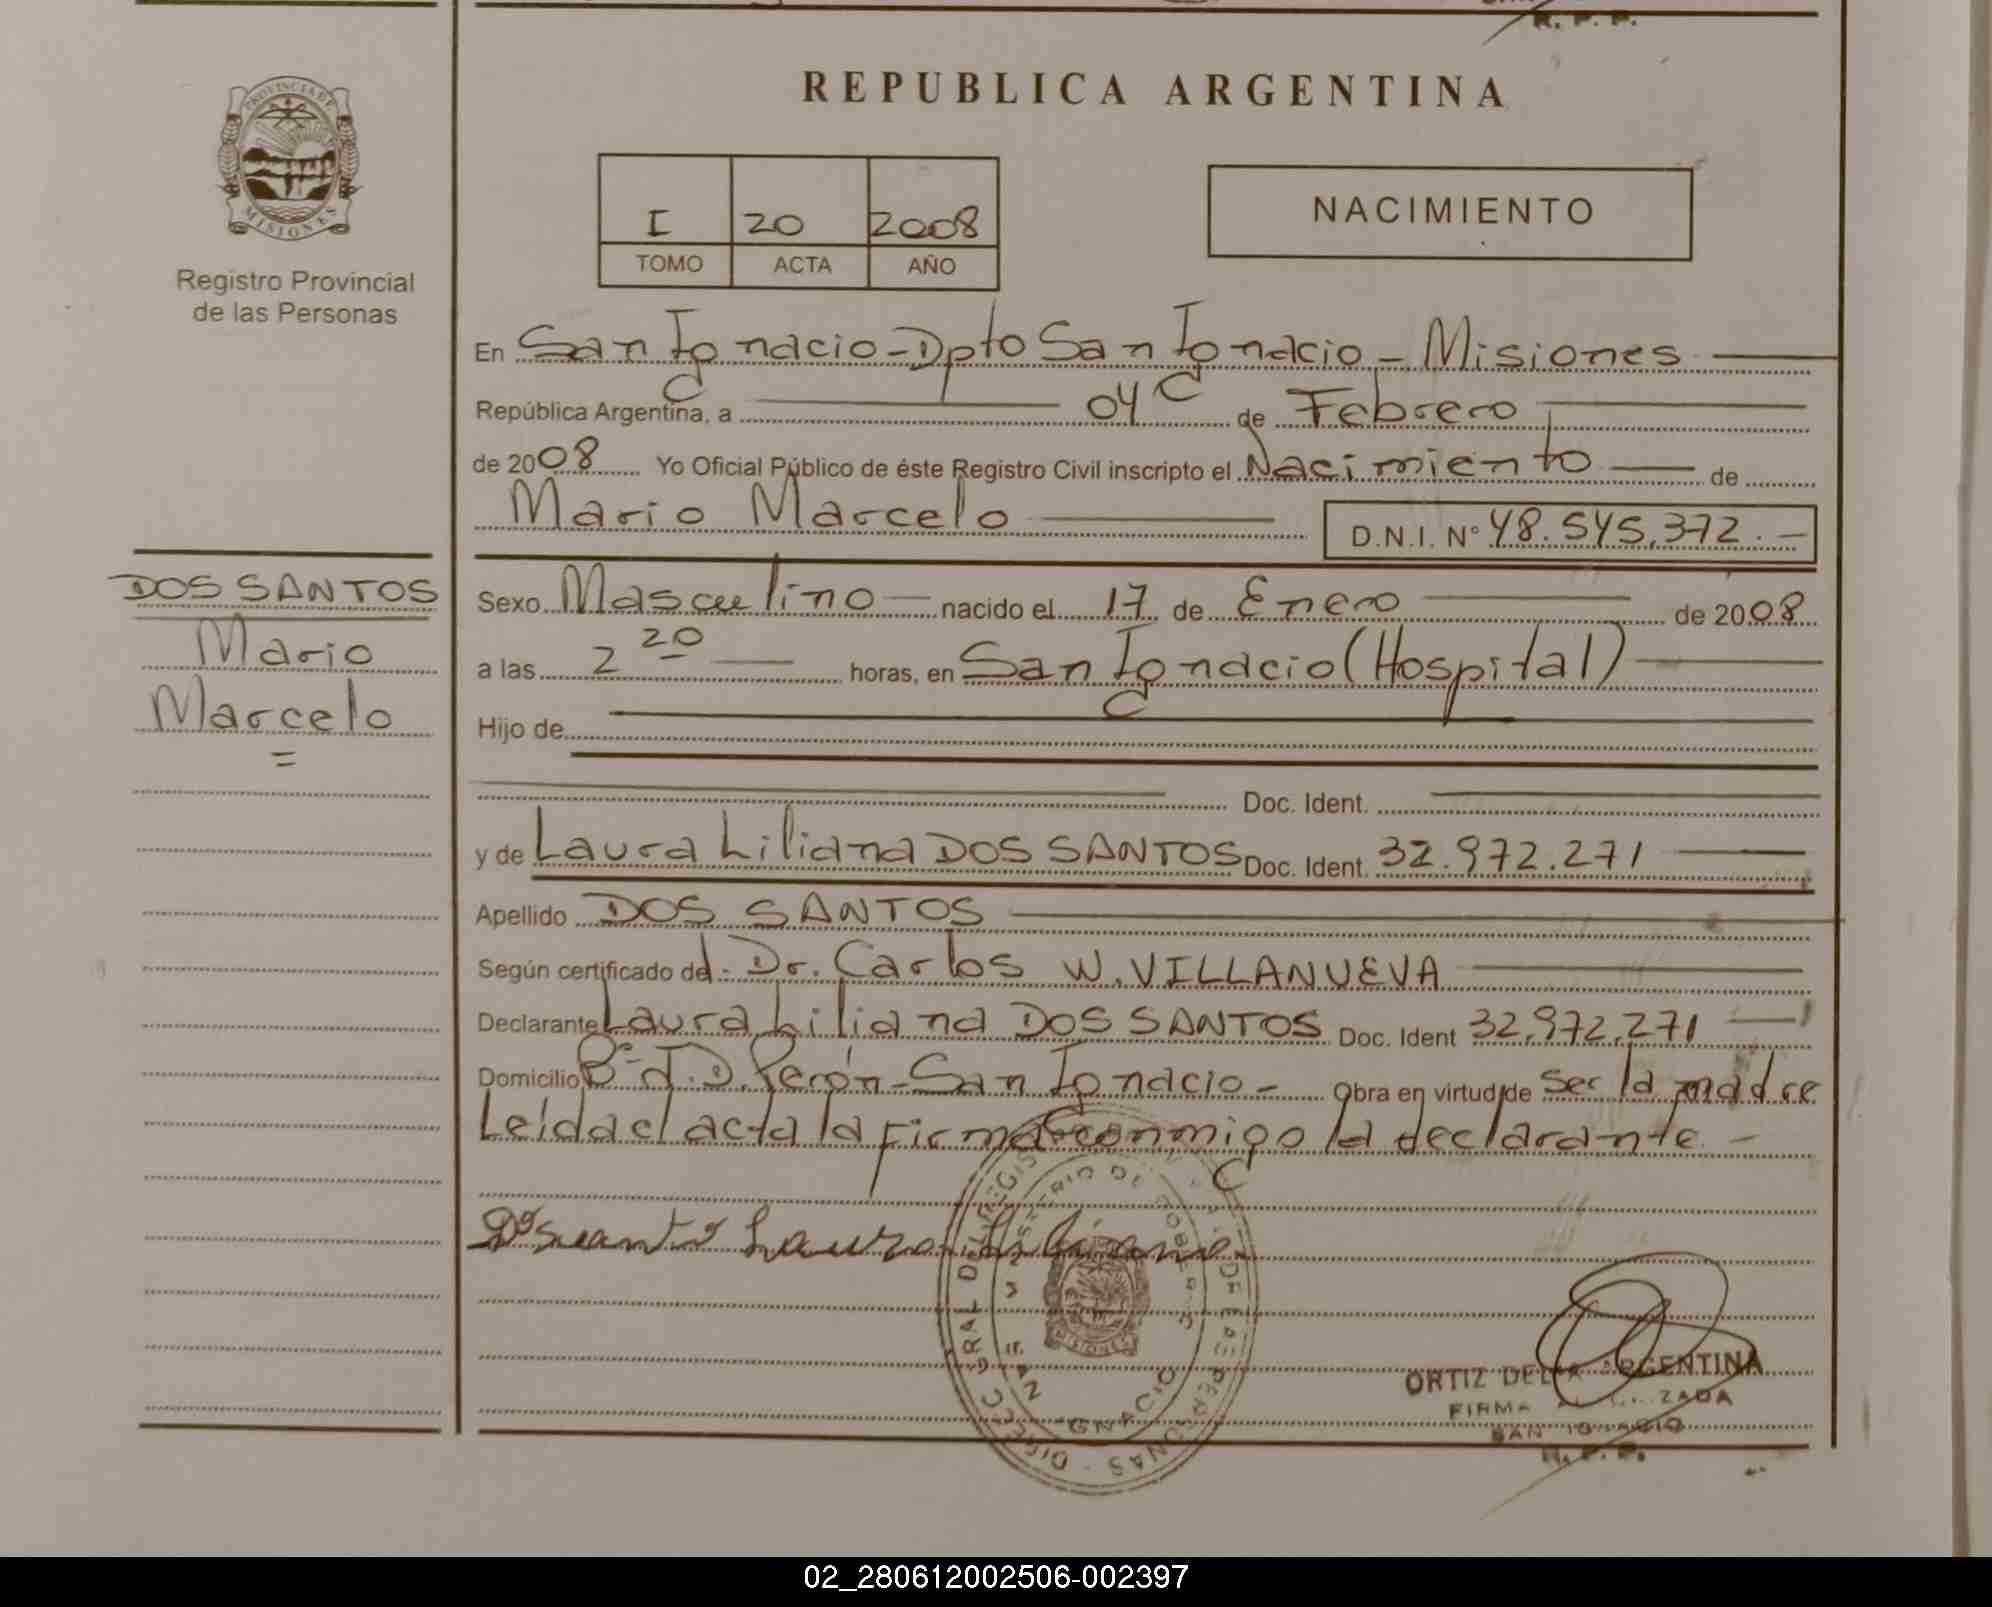 R. P. P.
REPUBLICA ARGENTINA
PROVINCIA DE
MISIONES
Registro Provincial
de las Personas
I 20 2008
TOMO ACTA AÑO
NACIMIENTO
En San Ignacio - Dpto San Ignacio - Misiones
República Argentina, a 04 de Febrero
de 2008 Yo Oficial Público de éste Registro Civil inscripto el Nacimiento de
Mario Marcelo D.N.I. Nº 48.545.372.-
DOS SANTOS
Mario
Marcelo
=
Sexo Masculino nacido el 17 de Enero de 2008
a las 2 20 horas, en San Ignacio (Hospital)
Hijo de
Doc. Ident.
y de Laura Liliana DOS SANTOS Doc. Ident. 32.972.271
Apellido DOS SANTOS
Según certificado del: Dr. Carlos W. VILLANUEVA
Declarante Laura Liliana DOS SANTOS Doc. Ident 32.972.271
Domicilio Bº J.D. Perón - San Ignacio - Obra en virtud de ser la madre
Leída el acta la firma conmigo la declarante. -
Dos Santos Laura Liliana
MISIONES
ORTIZ ARGENTINA
FIRMA
SAN IGNACIO
R. P. P.
02_280612002506-002397